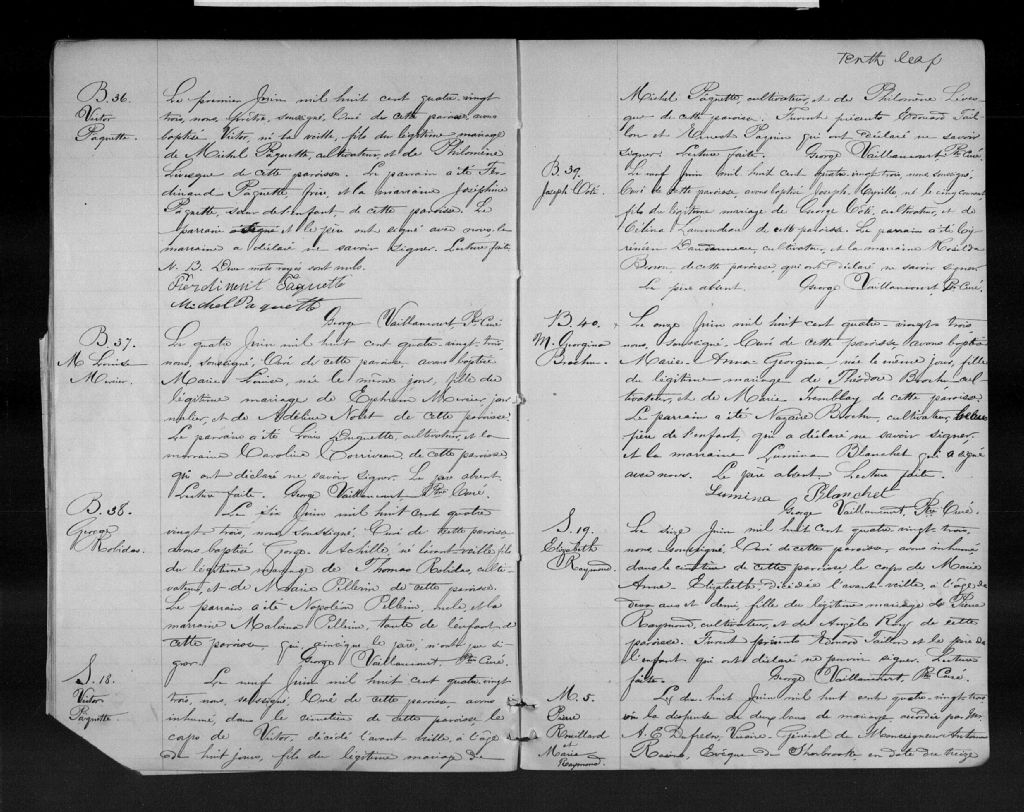 B. 36.
Victor
Paquette.
Le premier Juin mil huit cent quatre-vingt
trois, nous, prêtre, soussigné, Curé de cette paroisse, avons
baptisé Victor, né la veille, fils du légitime mariage
de Michel Paquette, cultivateur, et de Philomène
Livesque de cette paroisse. Le parrain a été Fer-
dinand Paquette frère et la marraine Joséphine
Paquette, sœur de l'enfant de cette paroisse. Le
parrain et le père ont signé avec nous, la
marraine a déclaré ne savoir signer. Lecture faite.
N. B. Deux mots rayés sont nuls.
Ferdinent Paquette
Michel Paquette
George Vaillancourt Ptre Curé
B. 37.
M. Louise
Mercier.
Le quatre Juin mil huit cent quatre-vingt-trois,
nous, soussigné, Curé de cette paroisse, avons baptisé
Marie Louise, née le même jour, fille du
légitime mariage de Ephrem Mercier, jour-
nalier, et de Adéline Nolet de cette paroisse.
Le parrain a été Louis Duquette, cultivateur, et la
marraine Caroline Corriveau, de cette paroisse
qui ont déclaré ne savoir signer. Le père absent.
Lecture faite. George Vaillancourt Ptre Curé.
B. 38.
George
Robidas.
Le six Juin mil huit cent quatre
vingt-trois, nous, soussigné, Curé de cette paroisse
avons baptisé George Achille, né l'avant-veille, fils
du légitime mariage de Thomas Robidas, culti-
vateur, et de Marie Pellerin de cette paroisse.
Le parrain a été Napoléon Pellerin, oncle, et la
marraine Malvina Pellerin, tante de l'enfant de
cette paroisse, qui, ainsi que le père, n'ont pu si-
gner. George Vaillancourt Ptre Curé.
S. 18.
Victor
Paquette
Le neuf Juin mil huit cent quatre-vingt
trois, nous, soussigné, Curé de cette paroisse avons
inhumé, dans le cimetière de cette paroisse le
corps de Victor, décédé l'avant-veille, à l'âge
de huit jours, fils du légitime mariage de
Tenth leaf
Michel Paquette, cultivateur, et de Philomène Lives-
que de cette paroisse. Furent présents Edouard Tail-
lon et Ernest Paquin qui ont déclaré ne savoir
signer. Lecture faite. George Vaillancourt Ptre Curé.
B. 39.
Joseph Coté.
Le neuf Juin mil huit cent quatre vingt trois, nous, soussigné,
Curé de cette paroisse, avons baptisé Joseph Cyrille né le cinq courant,
fils du légitime mariage de George Coté, cultivateur, et de
Celina Lamondeau de cette paroisse. Le parrain a été
Dandonneau, cultivateur, et la marraine Rosilda
Brown de cette paroisse, qui ont déclaré ne savoir signer
le père absent. George Vaillancourt, Ptre Curé.
B. 40.
M. Georgina
Brochu.
Le onze Juin mil huit cent quatre-vingt-trois
nous, soussigné, Curé de cette paroisse avons baptisé
Marie Anna Georgina, née le même jour, fille
du légitime mariage de Théodore Brochu cul-
tivateur, et de Marie Tremblay de cette paroisse.
Le parrain a été Nazaire Brochu, cultivateur,
père de l'enfant, qui a déclaré ne savoir signer,
et la marraine Lumina Blanchet qui a signé
avec nous. Le père absent. Lecture faite.
Lumina Blanchet
George Vaillancourt, Ptre Curé.
S. 19.
Elizabeth
Raymond.
Le seize Juin mil huit cent quatre vingt trois,
nous, soussigné, Curé de cette paroisse, avons inhumé
dans le cimetière de cette paroisse le corps de Marie
Anna Elizabeth décédée l'avant-veille, à l'âge de
deux ans et demi, fille du légitime mariage de Pierre
Raymond, cultivateur, et de Angèle Roy de cette
paroisse. Furent présents Edouard Taillon et le père de
l'enfant qui ont déclaré ne pouvoir signer. Lecture
faite. George Vaillancourt Ptre Curé.
M. 5.
Pierre
Rouillard
et
Marie
Raymond.
Le dix huit Juin mil huit cent quatre-vingt trois
vu la dispense de deux bans de mariage accordée par Mr.
A. E. Dufresne, Vicaire Général de Monseigneur Antoine
Racine, Evêque de Sherbrooke, en date du treize